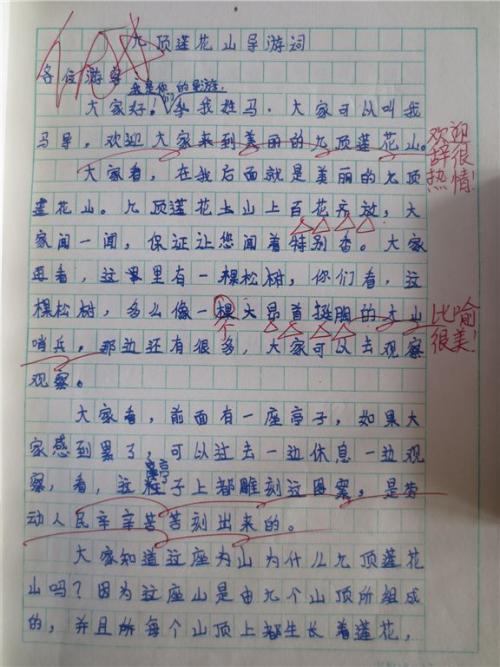 九顶莲花山导游词
各位游客
我是你们的导游。
大家好。我姓马，大家可以叫我
马导。欢迎大家来到美丽的九顶莲花山。
欢迎辞很热情！
大家看，在我后面就是美丽的九顶
莲花山。九顶莲花山上百花齐放，大
家闻一闻，保证让您闻着特别香。大家
再看，这里有一棵松树，你们看，这
棵松树，多么像一棵大昂首挺胸的大山
个
比喻很美！
哨兵。那边还有很多，大家可以去观察
观察。
大家看，前面有一座亭子，如果大
家感到累了，可以过去一边休息一边观
察，看，这亭子上都雕刻这图案，是劳
动人民辛辛苦苦刻出来的。
大家知道这座为山为什么九顶莲花
山吗？因为这座山是由九个山顶所组成
的，并且所每个山顶上都生长着莲花，